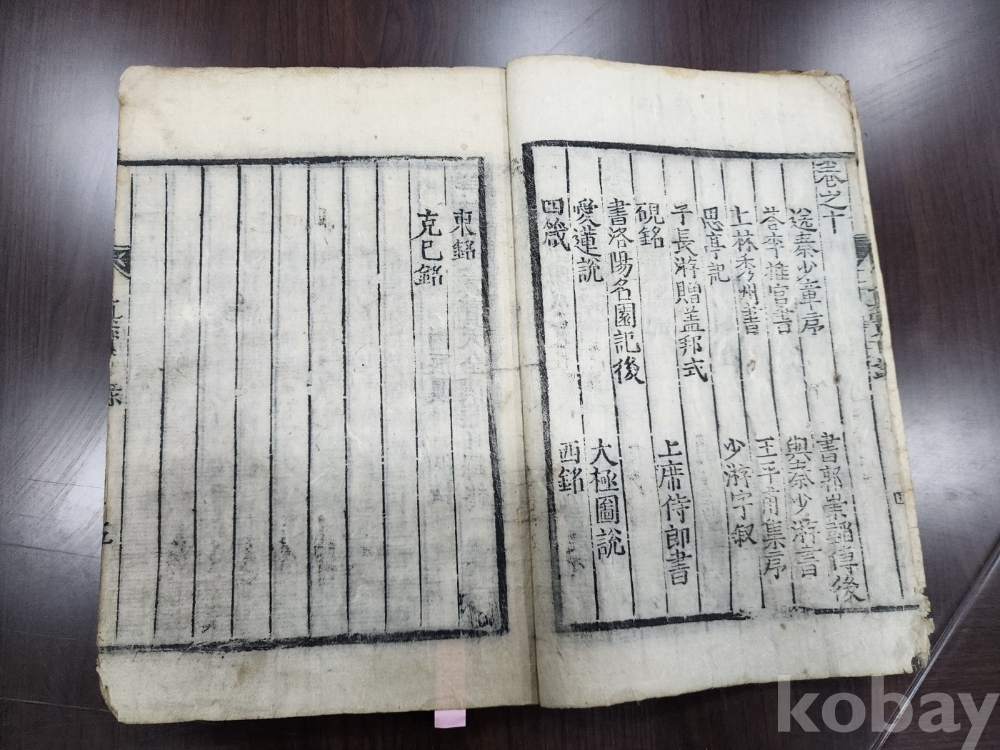 卷之十
送秦少章序 書郭崇韜傳後
荅李推官書 與秦少游書
上林秀州書 王平甫集序
思亭記 少游字叙
子長游贈盖邦式
硯銘 上席侍郎書
書洛陽名園記後
愛蓮說 大極圖說
四箴 西銘
東銘
克己銘
kobay